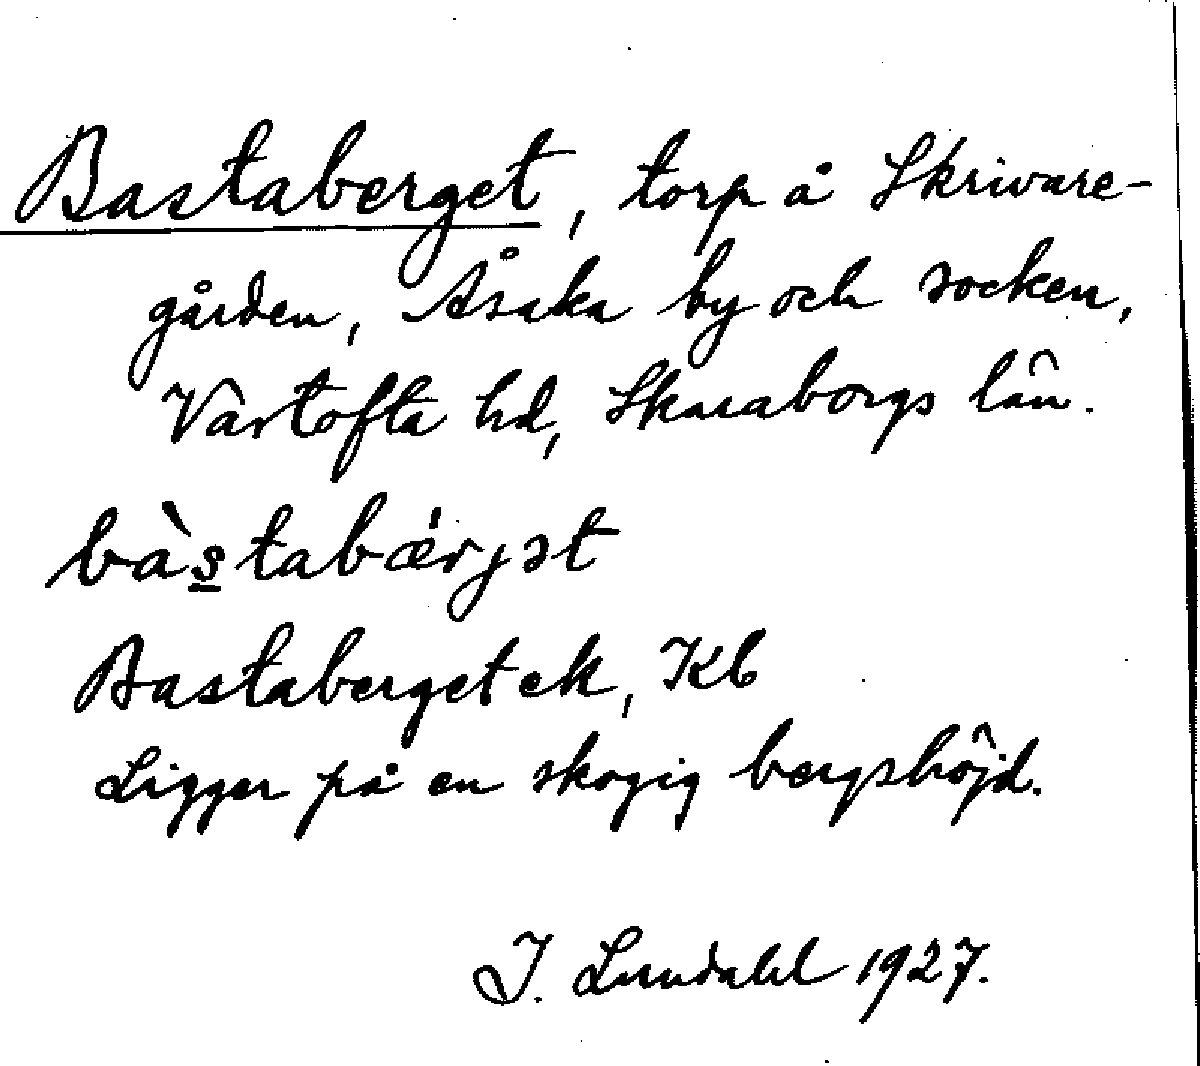 Bastaberget, torp å Skrivare-
gården, Åsaka by och socken,
Vartofta hd, Skaraborgs län.
bàs̲tabǽrjət
Bastaberget ek, Kb
Ligger på en skogig bergshöjd.
I. Lundahl 1927.